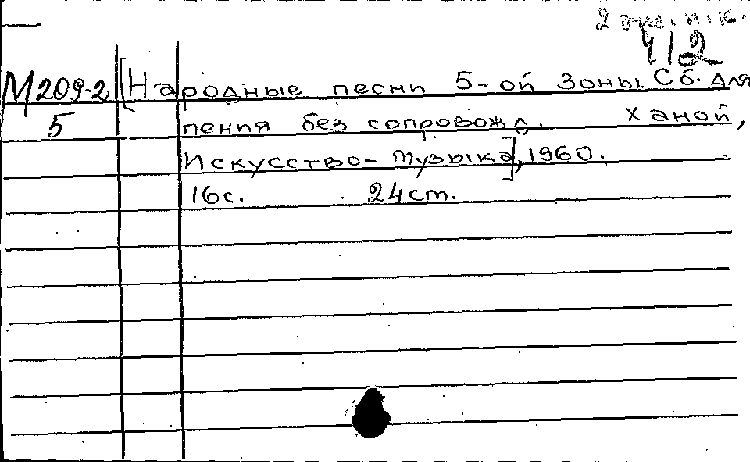 412
М209-2 [Народные песни 5-ой Зоны. Сб. для
5 пения без сопровожд. Ханой,
Искусство-Музыка], 1960.
16с. 24см.